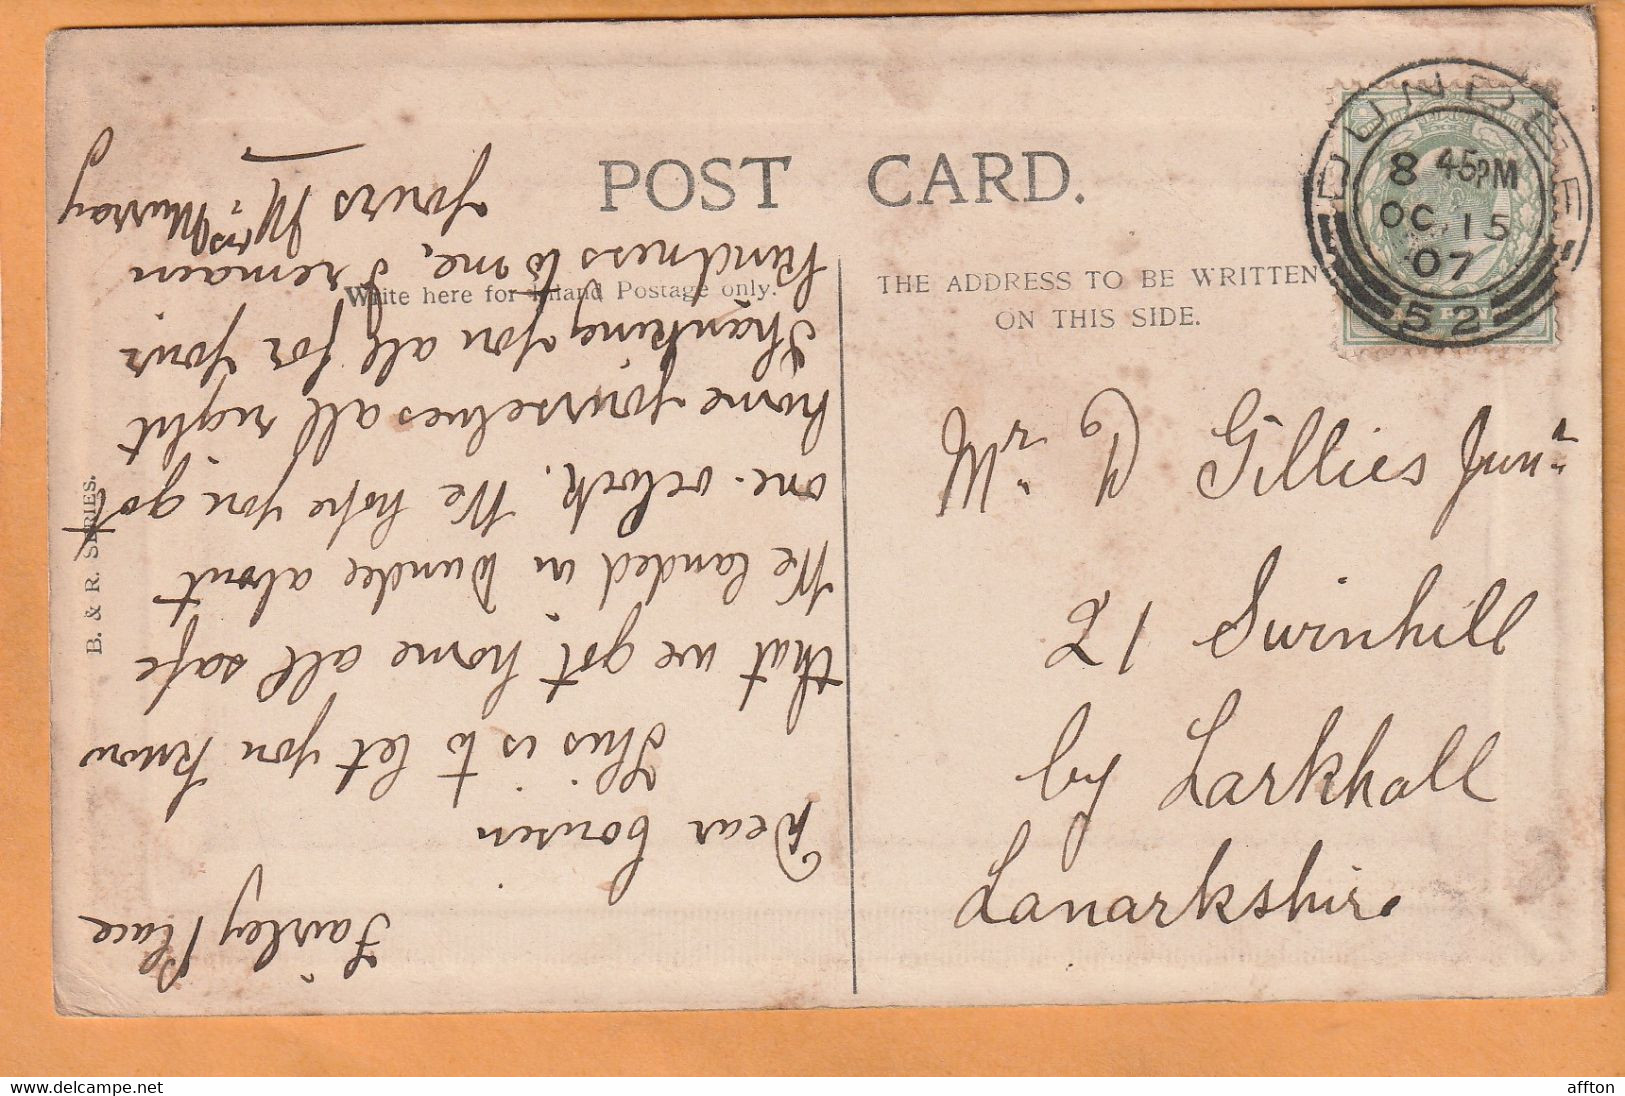 POST CARD.
Write here for Inland Postage only.
THE ADDRESS TO BE WRITTEN
ON THIS SIDE.
DUNDEE
8 45PM
OC 15
07
52
B. & R. SERIES.
Mr D Gillies Junr
21 Swinhill
by Larkhall
Lanarkshire
Fairley Place
Dear Cousin
This is to let you know
that we got home all safe
We landed in Dundee about
one-oclock. We hope you got
home yourselves all right
Thanking you all for your
kindness to me, I remain
Yours Mrs Murray
www.delcampe.net
affton